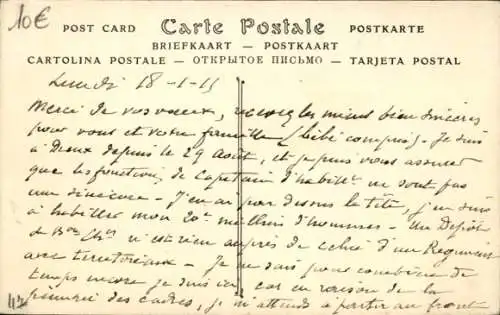 10€
POST CARD Carte Postale POSTKARTE
BRIEFKAART — POSTKAART
CARTOLINA POSTALE — ОТКРЫТОЕ ПИСЬМО — TARJETA POSTAL
Lundi 18-1-15
Merci de vos vœux, recevez les miens bien sincères
pour vous et votre famille (bébé compris). Je suis
à Dreux depuis le 29 Août, et je puis vous assurer
que les fonctions de Capitaine d'habillt ne sont pas
une sinécure. J'en ai par dessus la tête, j'en suis
à habiller mon 20e millier d'hommes. Un Dépôt
de n'est rien auprès de celui d'un Régiment
avec territoriaux. Je ne sais pour combien de
temps encore je suis ici, car en raison de la
pénurie des cadres, je m'attends à partir au front